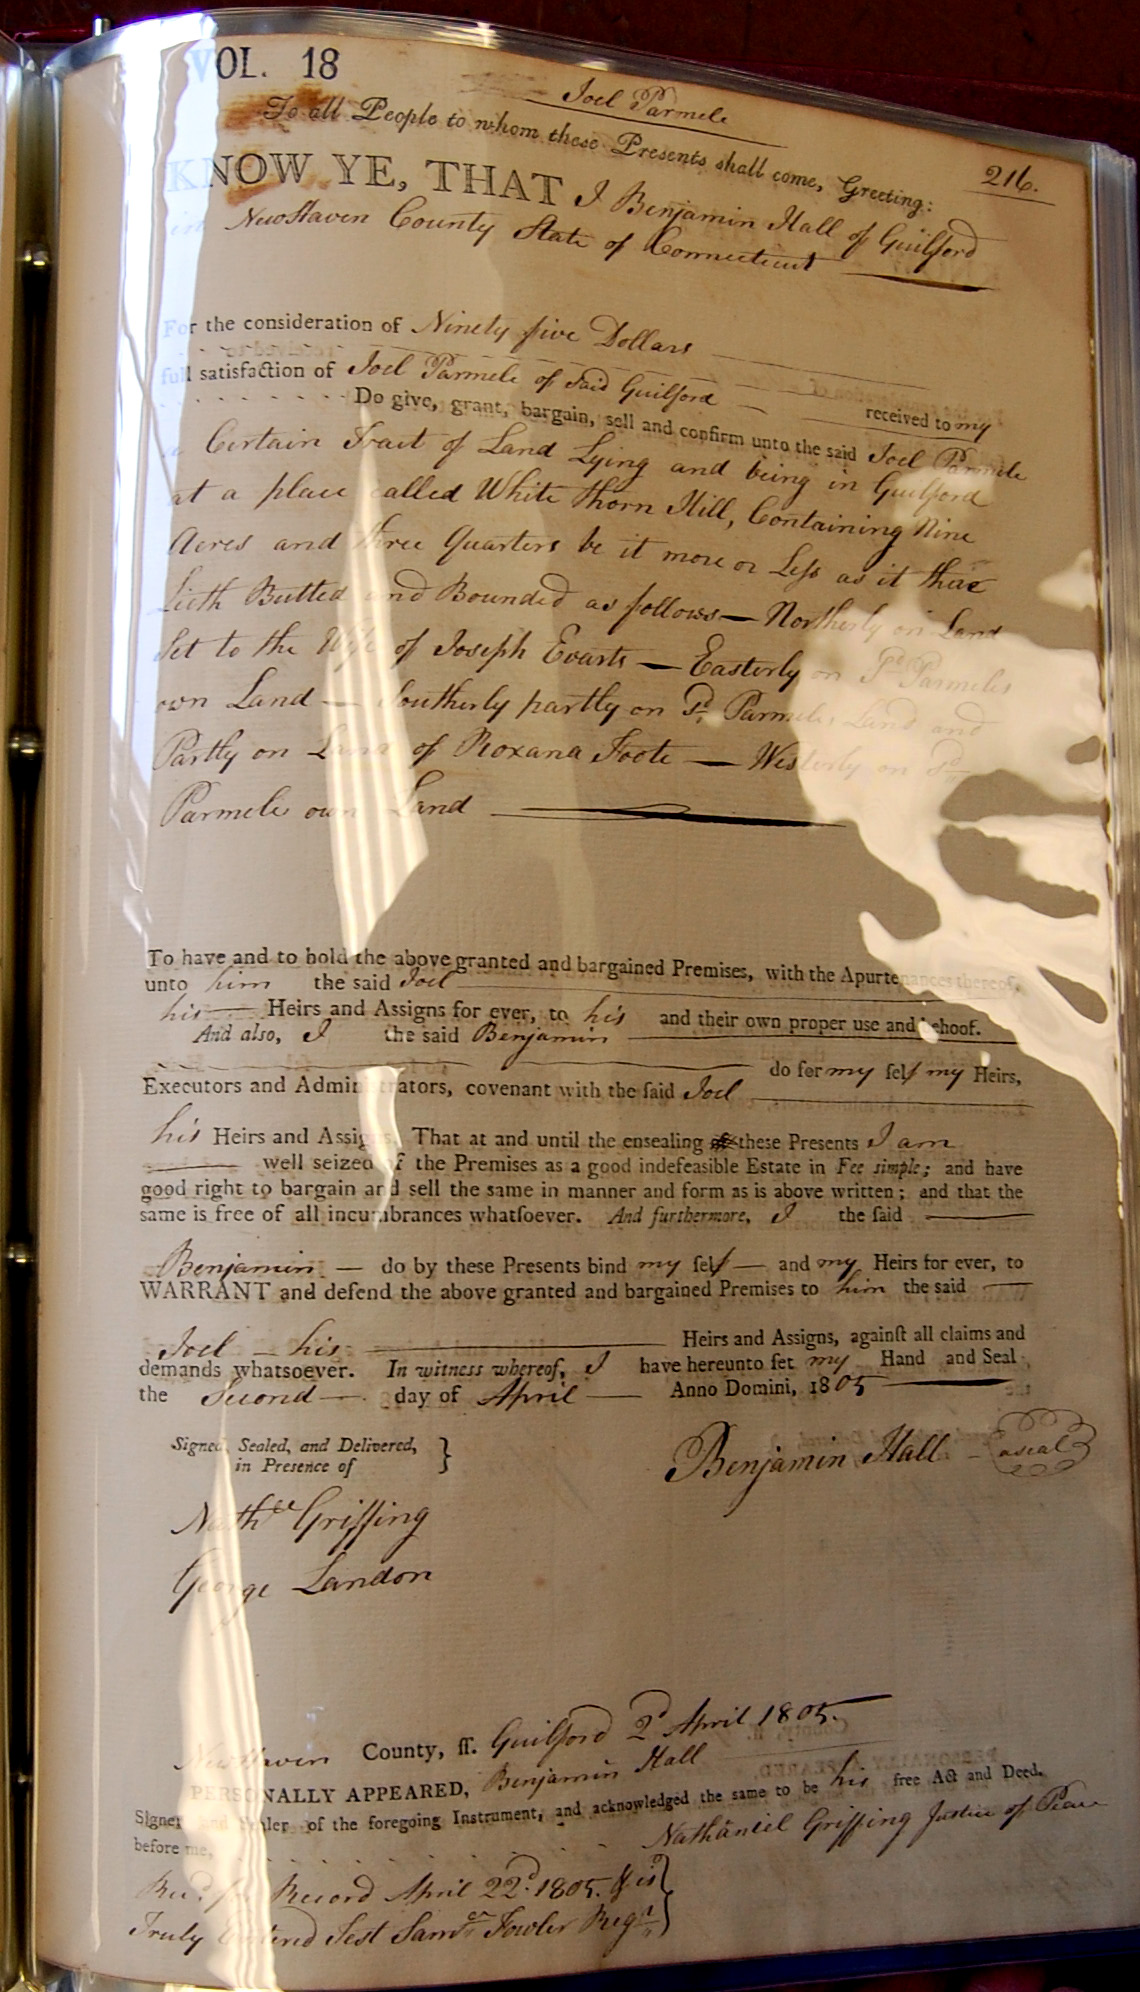 VOL. 18
Joel Parmele
To all People to whom these Presents shall come, Greeting:
216.
KNOW YE, THAT I Benjamin Hall of Guilford
in NewHaven County State of Connecticut
For the consideration of Ninety five Dollars
received to my
full satisfaction of Joel Parmele of said Guilford
Do give, grant, bargain, sell and confirm unto the said Joel Parmele
a Certain Tract of Land Lying and being in Guilford
at a place called White thorn Hill, Containing Nine
Acres and three Quarters be it more or Less as it thare
Lieth Butted and Bounded as follows — Northerly on Land
Set to the Wife of Joseph Evarts — Easterly on Sd Parmeles
own Land — Southerly partly on Sd Parmeles Land and
Partly on Land of Roxana Foote — Westerly on Sd
Parmele own Land
To have and to hold the above granted and bargained Premises, with the Apurtenances thereof,
unto him the said Joel
his Heirs and Assigns for ever, to his and their own proper use and behoof.
And also, I the said Benjamin
do for my self my Heirs,
Executors and Administrators, covenant with the said Joel
his Heirs and Assigns, That at and until the ensealing of these Presents I am
well seized of the Premises as a good indefeasible Estate in Fee simple; and have
good right to bargain and sell the same in manner and form as is above written; and that the
same is free of all incumbrances whatsoever. And furthermore, I the said
Benjamin — do by these Presents bind my self — and my Heirs for ever, to
WARRANT and defend the above granted and bargained Premises to him the said
Joel — his Heirs and Assigns, against all claims and
demands whatsoever. In witness whereof, I have hereunto set my Hand and Seal
the Second day of April Anno Domini, 1805
Signed, Sealed, and Delivered,
in Presence of }
Benjamin Hall — a seal
Nathll Griffing
George Landon
NewHaven County, ss. Guilford 2d April 1805.
PERSONALLY APPEARED, Benjamin Hall
Signer and Sealer of the foregoing Instrument, and acknowledged the same to be his free Act and Deed,
before me, Nathaniel Griffing Justice of Peace
Recd for Record April 22d 1805. & is
Truly Entered Test Samll Fowler Regr